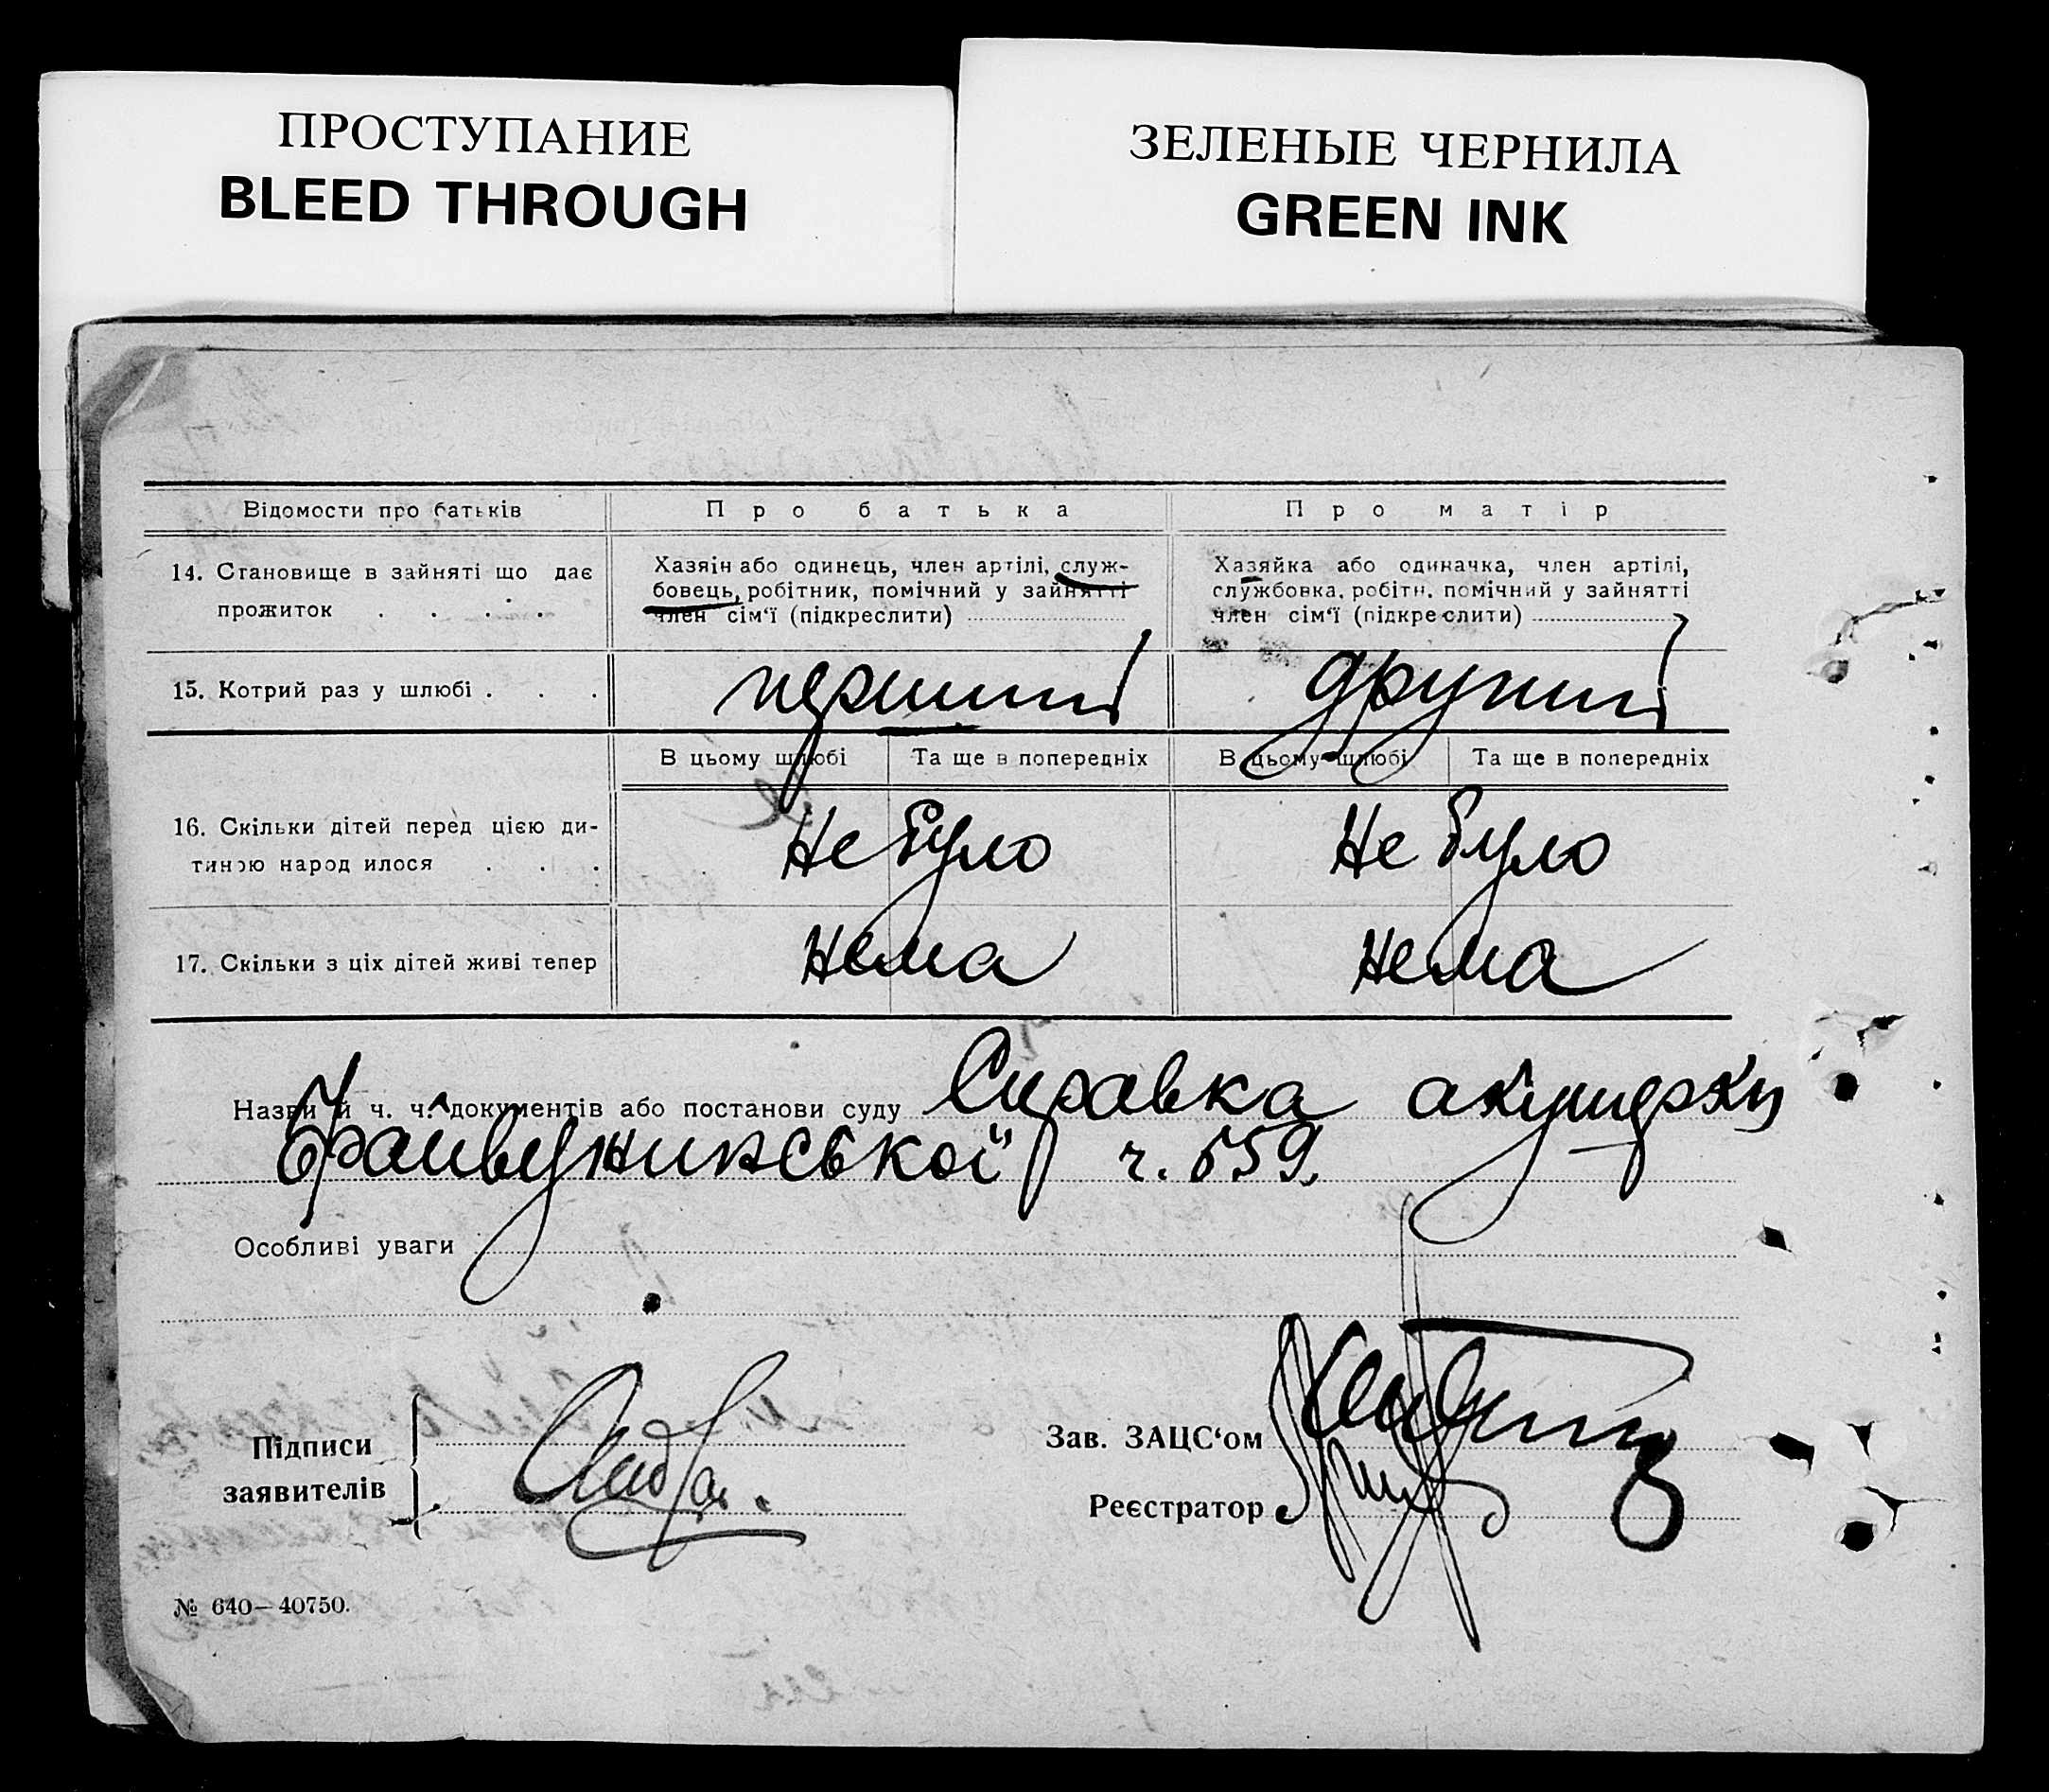 ПРОСТУПАНИЕ
BLEED THROUGH
ЗЕЛЕНЫЕ ЧЕРНИЛА
GREEN INK
Відомости про батьків
Про батька
Про матір
14. Становище в зайняті що дає
прожиток . . . .
Хазяїн або одинець, член артілі, служ-
бовець, робітник, помічний у зайнятті
член сім‘ї (підкреслити)
Хазяйка або одиначка, член артілі,
службовка, робітн. помічний у зайнятті
член сім‘ї (підкреслити)
15. Котрий раз у шлюбі . . .
перший
другий
В цьому шлюбі
Та ще в попередніх
В цьому шлюбі
Та ще в попередніх
16. Скільки дітей перед цією ди-
тиною народ илося . . .
Не було
Не було
17. Скільки з ціх дітей живі тепер
Нема
Нема
Назви й ч. ч. документів або постанови суду Справка акушерки
ч. 559.
Особливі уваги
Підписи
заявителів
Зав. ЗАЦС‘ом
Реєстратор
№ 640—40750.